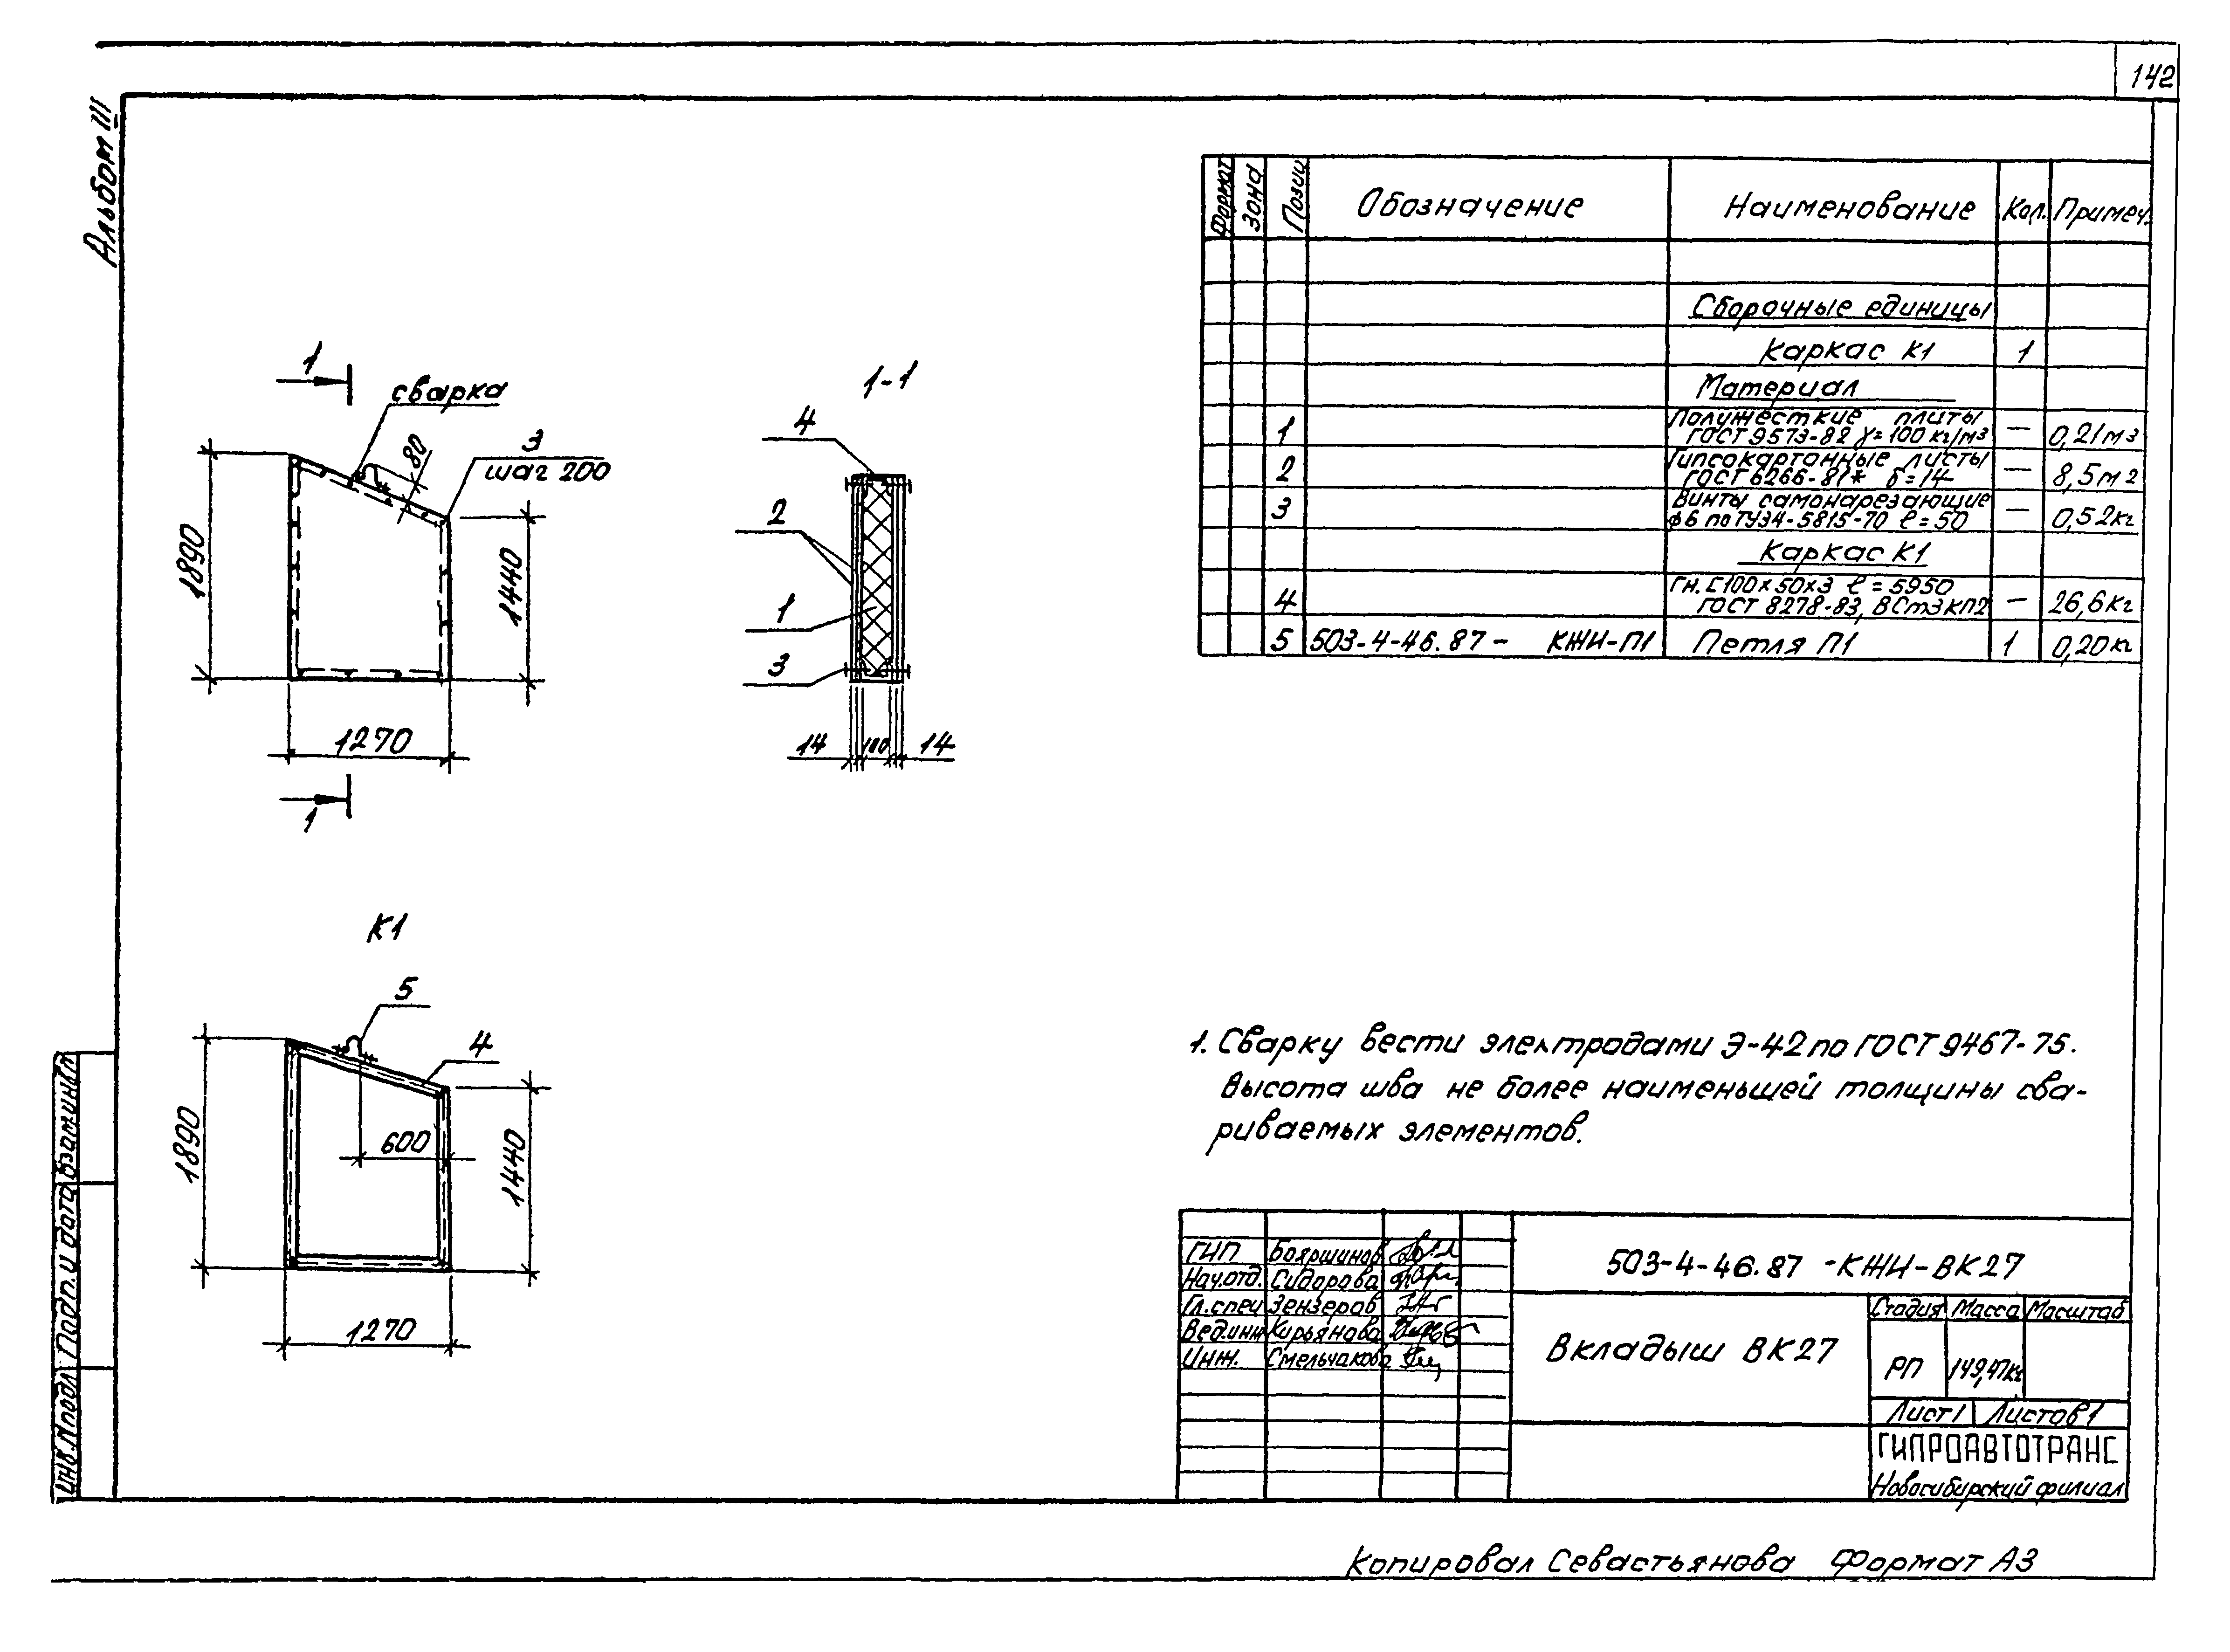 142
Альбом III
Формат Зона Позиц Обозначение Наименование Кол. Примеч.
Сборочные единицы
Каркас К1 1
Материал
1 Полужесткие плиты
ГОСТ 9573-82 γ=100 кг/м3 — 0,21м3
2 Гипсокартонные листы
ГОСТ 6266-81* δ=14 — 8,5м2
3 Винты самонарезающие
ф6 по ТУ34-5815-70 ℓ=50 — 0,52кг
Каркас К1
4 Гн. С100×50×3 ℓ=5950
ГОСТ 8278-83, ВСт3кп2 — 26,6кг
5 503-4-46.87- КЖИ-П1 Петля П1 1 0,20кг
1
сварка
80
3
шаг 200
1890
1440
1270
1
1-1
4
2
1
3
14 100 14
К1
5
4
1890
600
1440
1270
1. Сварку вести электродами Э-42 по ГОСТ 9467-75.
Высота шва не более наименьшей толщины сва-
риваемых элементов.
ГИП Бояршинов
Нач.отд. Сидорова
Гл.спец Зензеров
Вед.инж Кирьянова
Инж. Смельчакова
503-4-46.87 -КЖИ-ВК27
Вкладыш ВК27
Стадия Масса Масштаб
РП 149,47кг
Лист 1 Листов 1
ГИПРОАВТОТРАНС
Новосибирский филиал
Инв.№подл Подп. и дата Взам.инв.№
Копировал Севастьянова Формат А3